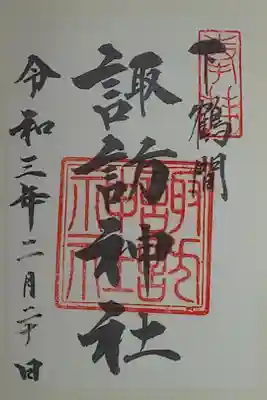 奉拝
下鶴間
諏訪神社
諏訪神社
令和三年二月二十日